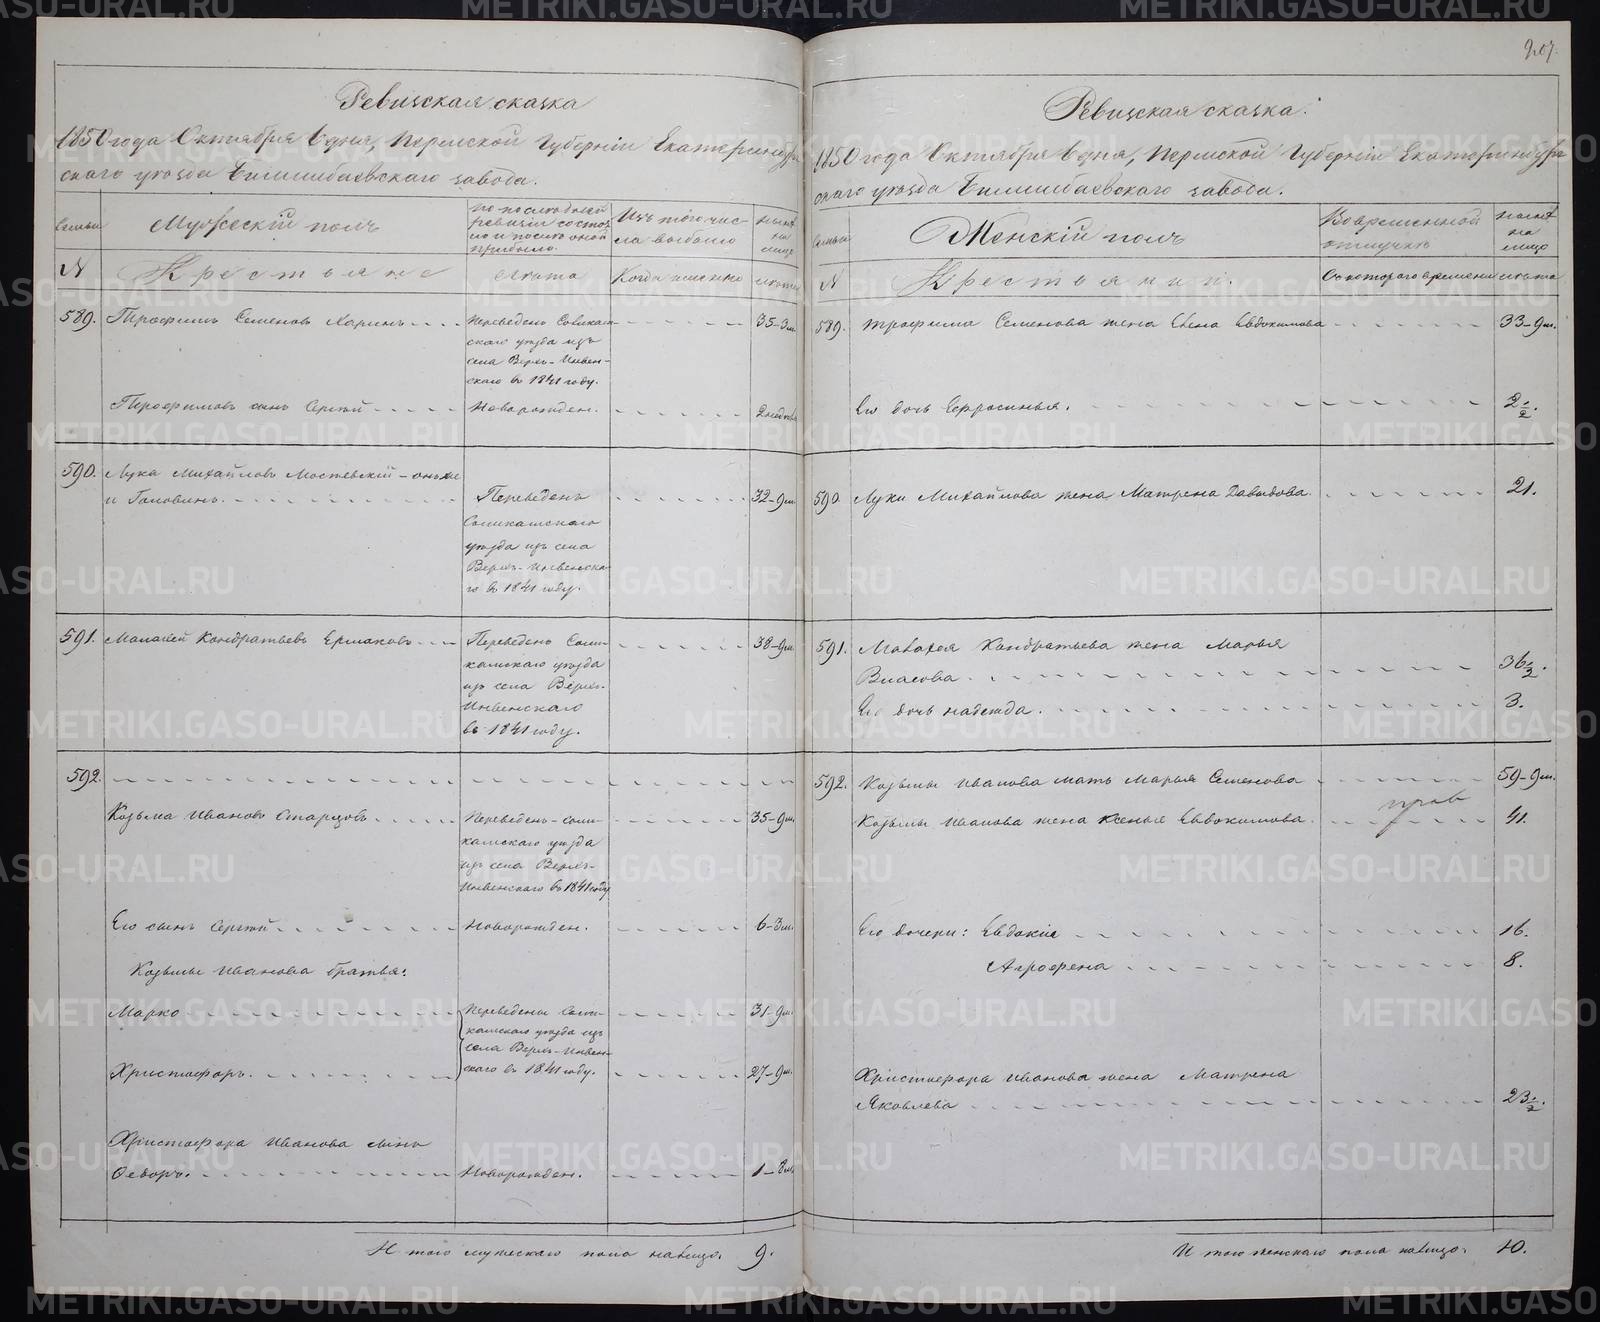 907.
Ревизская сказка
1850 года Октября 6 дня, Пермской Губерніи Екатеринбург
скаго уѣзда Билимбаевскаго завода.
Семьи
Мужескій полъ
по последней
ревизіи состоя
ло и после оной
прибыло.
Изъ того чис-
ла выбыло
ныне
на
лицо
N
Крестьяне
Лѣта
Когда именно
Лѣта
589. Трофимъ Семеновъ Харинъ
Переведенъ Соликам
скаго уѣзда изъ
села Верхъ-Инвен-
скаго въ 1841 году.
35-3 м.
Трофимовъ сынъ Сергѣй
Новорожден.
590. Лука Михайловъ Мостевскій - онъ же
и Головинъ.
Переведенъ
Соликамскаго
уѣзда изъ села
Верхъ-Инвенска
го въ 1841 году.
32-9 м.
591. Малафей Кондратьевъ Ермаковъ
Переведенъ Соли-
камскаго уѣзда
изъ села Верхъ-
Инвенскаго
въ 1841 году.
38-9 м.
592.
Козьма Ивановъ Старцовъ
Переведенъ Соли-
камскаго уѣзда
изъ села Верхъ-
Инвенскаго въ 1841 году
35-9 м.
Его сынъ Сергѣй
Новорожден.
6-3 м.
Козьмы Иванова братья:
Марко
Переведены Соли-
камскаго уѣзда изъ
села Верхъ-Инвен-
скаго въ 1841 году.
31-9 м.
Христофоръ.
27-9 м.
Христофора Иванова сынъ
Федоръ.
Новорожден.
И того мужескаго пола налицо. 9.
Ревизская сказка.
1850 года Октября 6 дня, Пермской Губерніи Екатеринбург
скаго уѣзда Билимбаевскаго завода.
Семьи
Женскій полъ
Во временной
отлучке
ныне
на
лицо
N
Крестьянки.
Съ котораго времени
Лѣта
589. Трофима Семенова жена Елена Евдокимова 33-9 м.
Его дочь Ефросинья. 2 1/2.
590. Луки Михайлова жена Матрена Давыдова. 21.
591. Малафея Кондратьева жена Марья
Власова. 36 1/2.
Его дочь Надежда. 3.
592. Козьмы Иванова мать Марья Семенова 59-9 м.
Козьмы Иванова жена Ксенья Евдокимова. 41.
Его дочери: Евдокия 16.
Агрофена 8.
Христофора Иванова жена Матрена
Яковлева 23 1/2.
И того женскаго пола налицо. 10.
METRIKI.GASO-URAL.RU